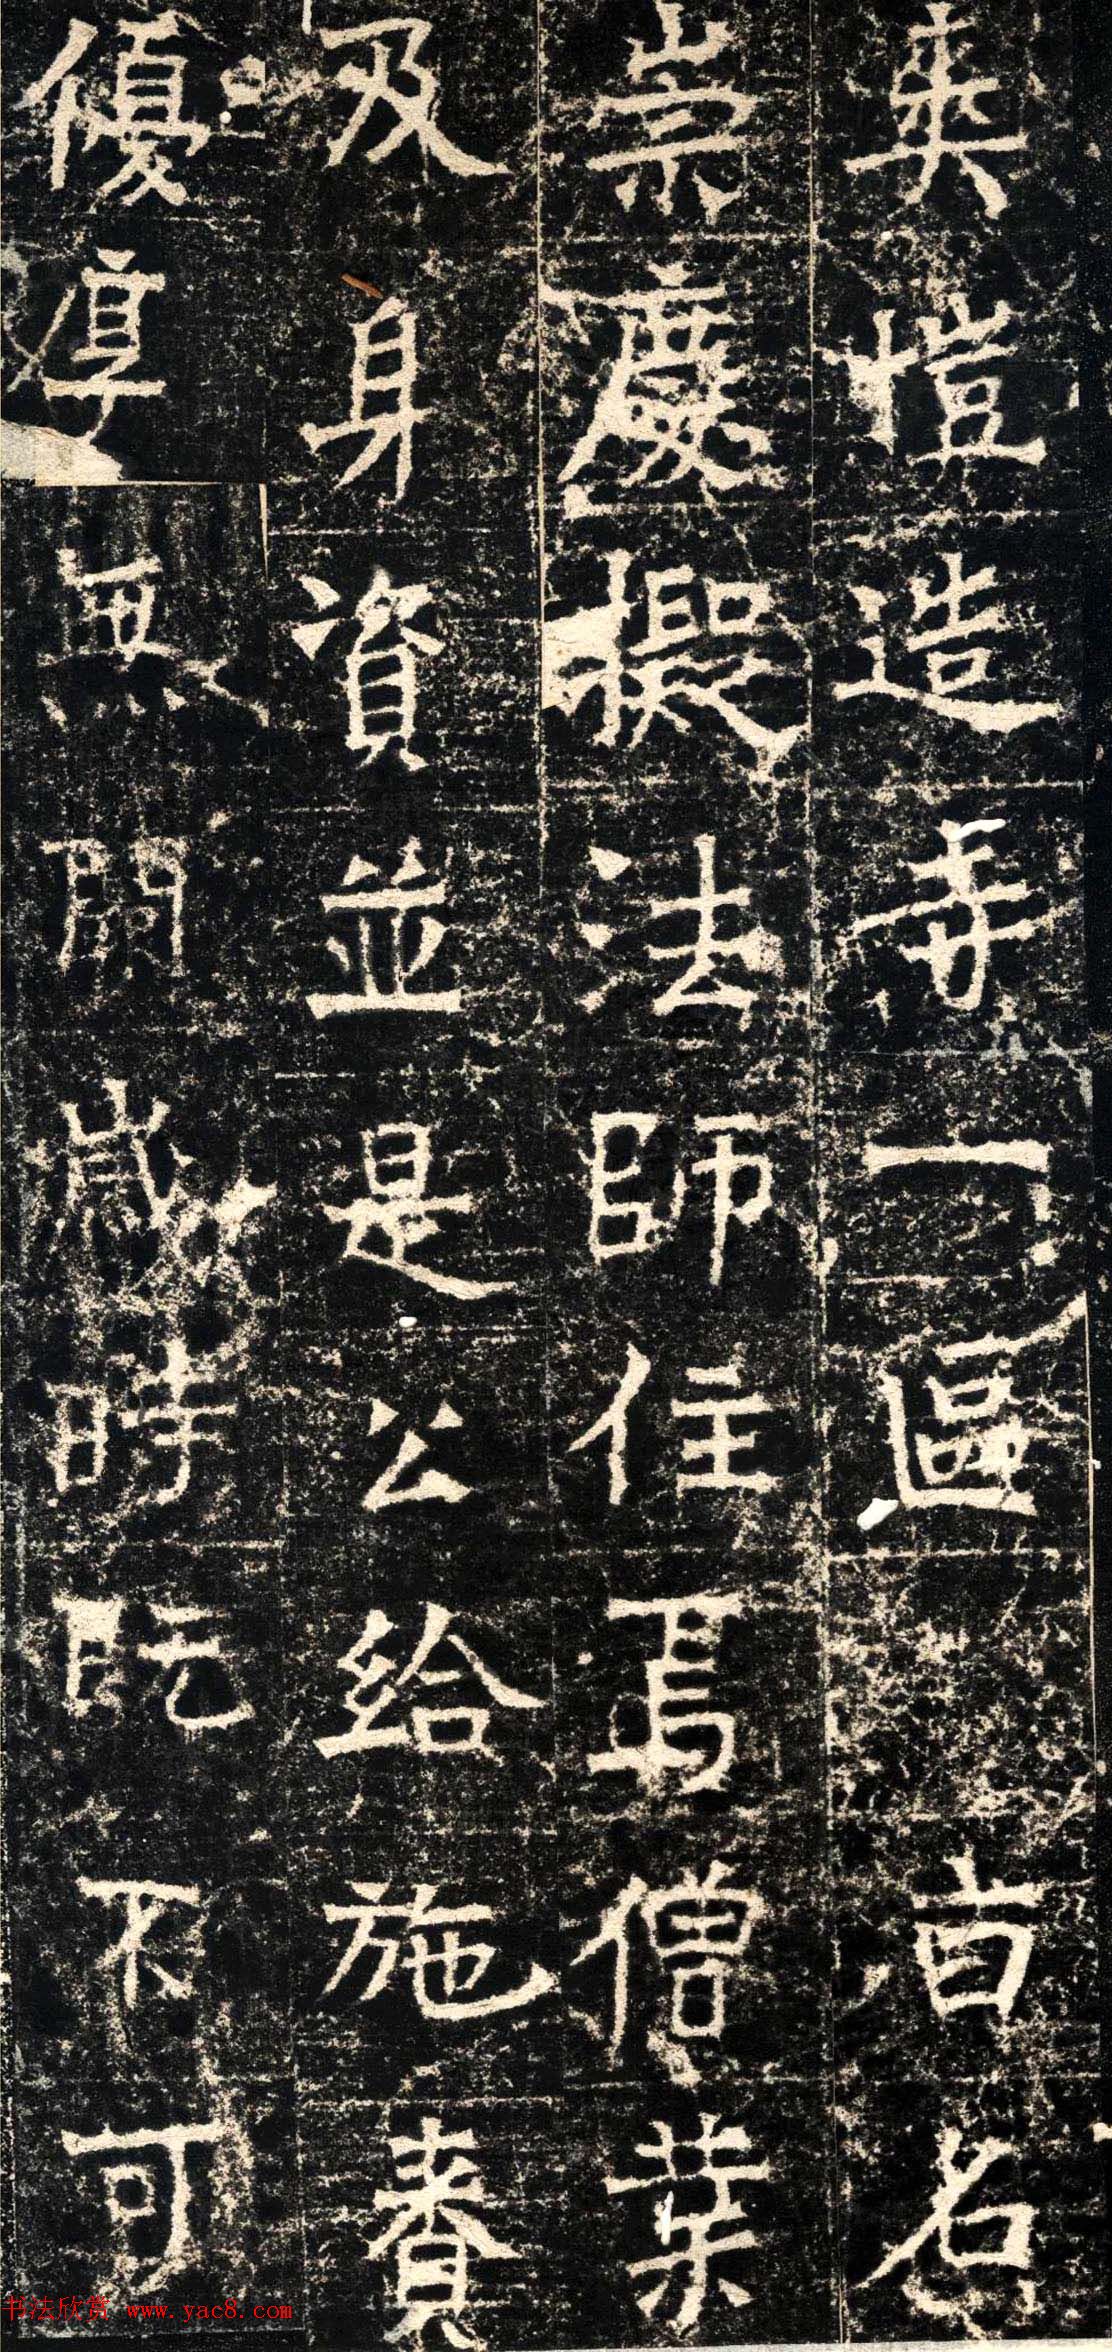 爽愷造寺一區名
崇慶擬法師住焉僧業
及身資並是公給施養
優厚無闕歲時既不可
书法欣赏 www.yac8.com